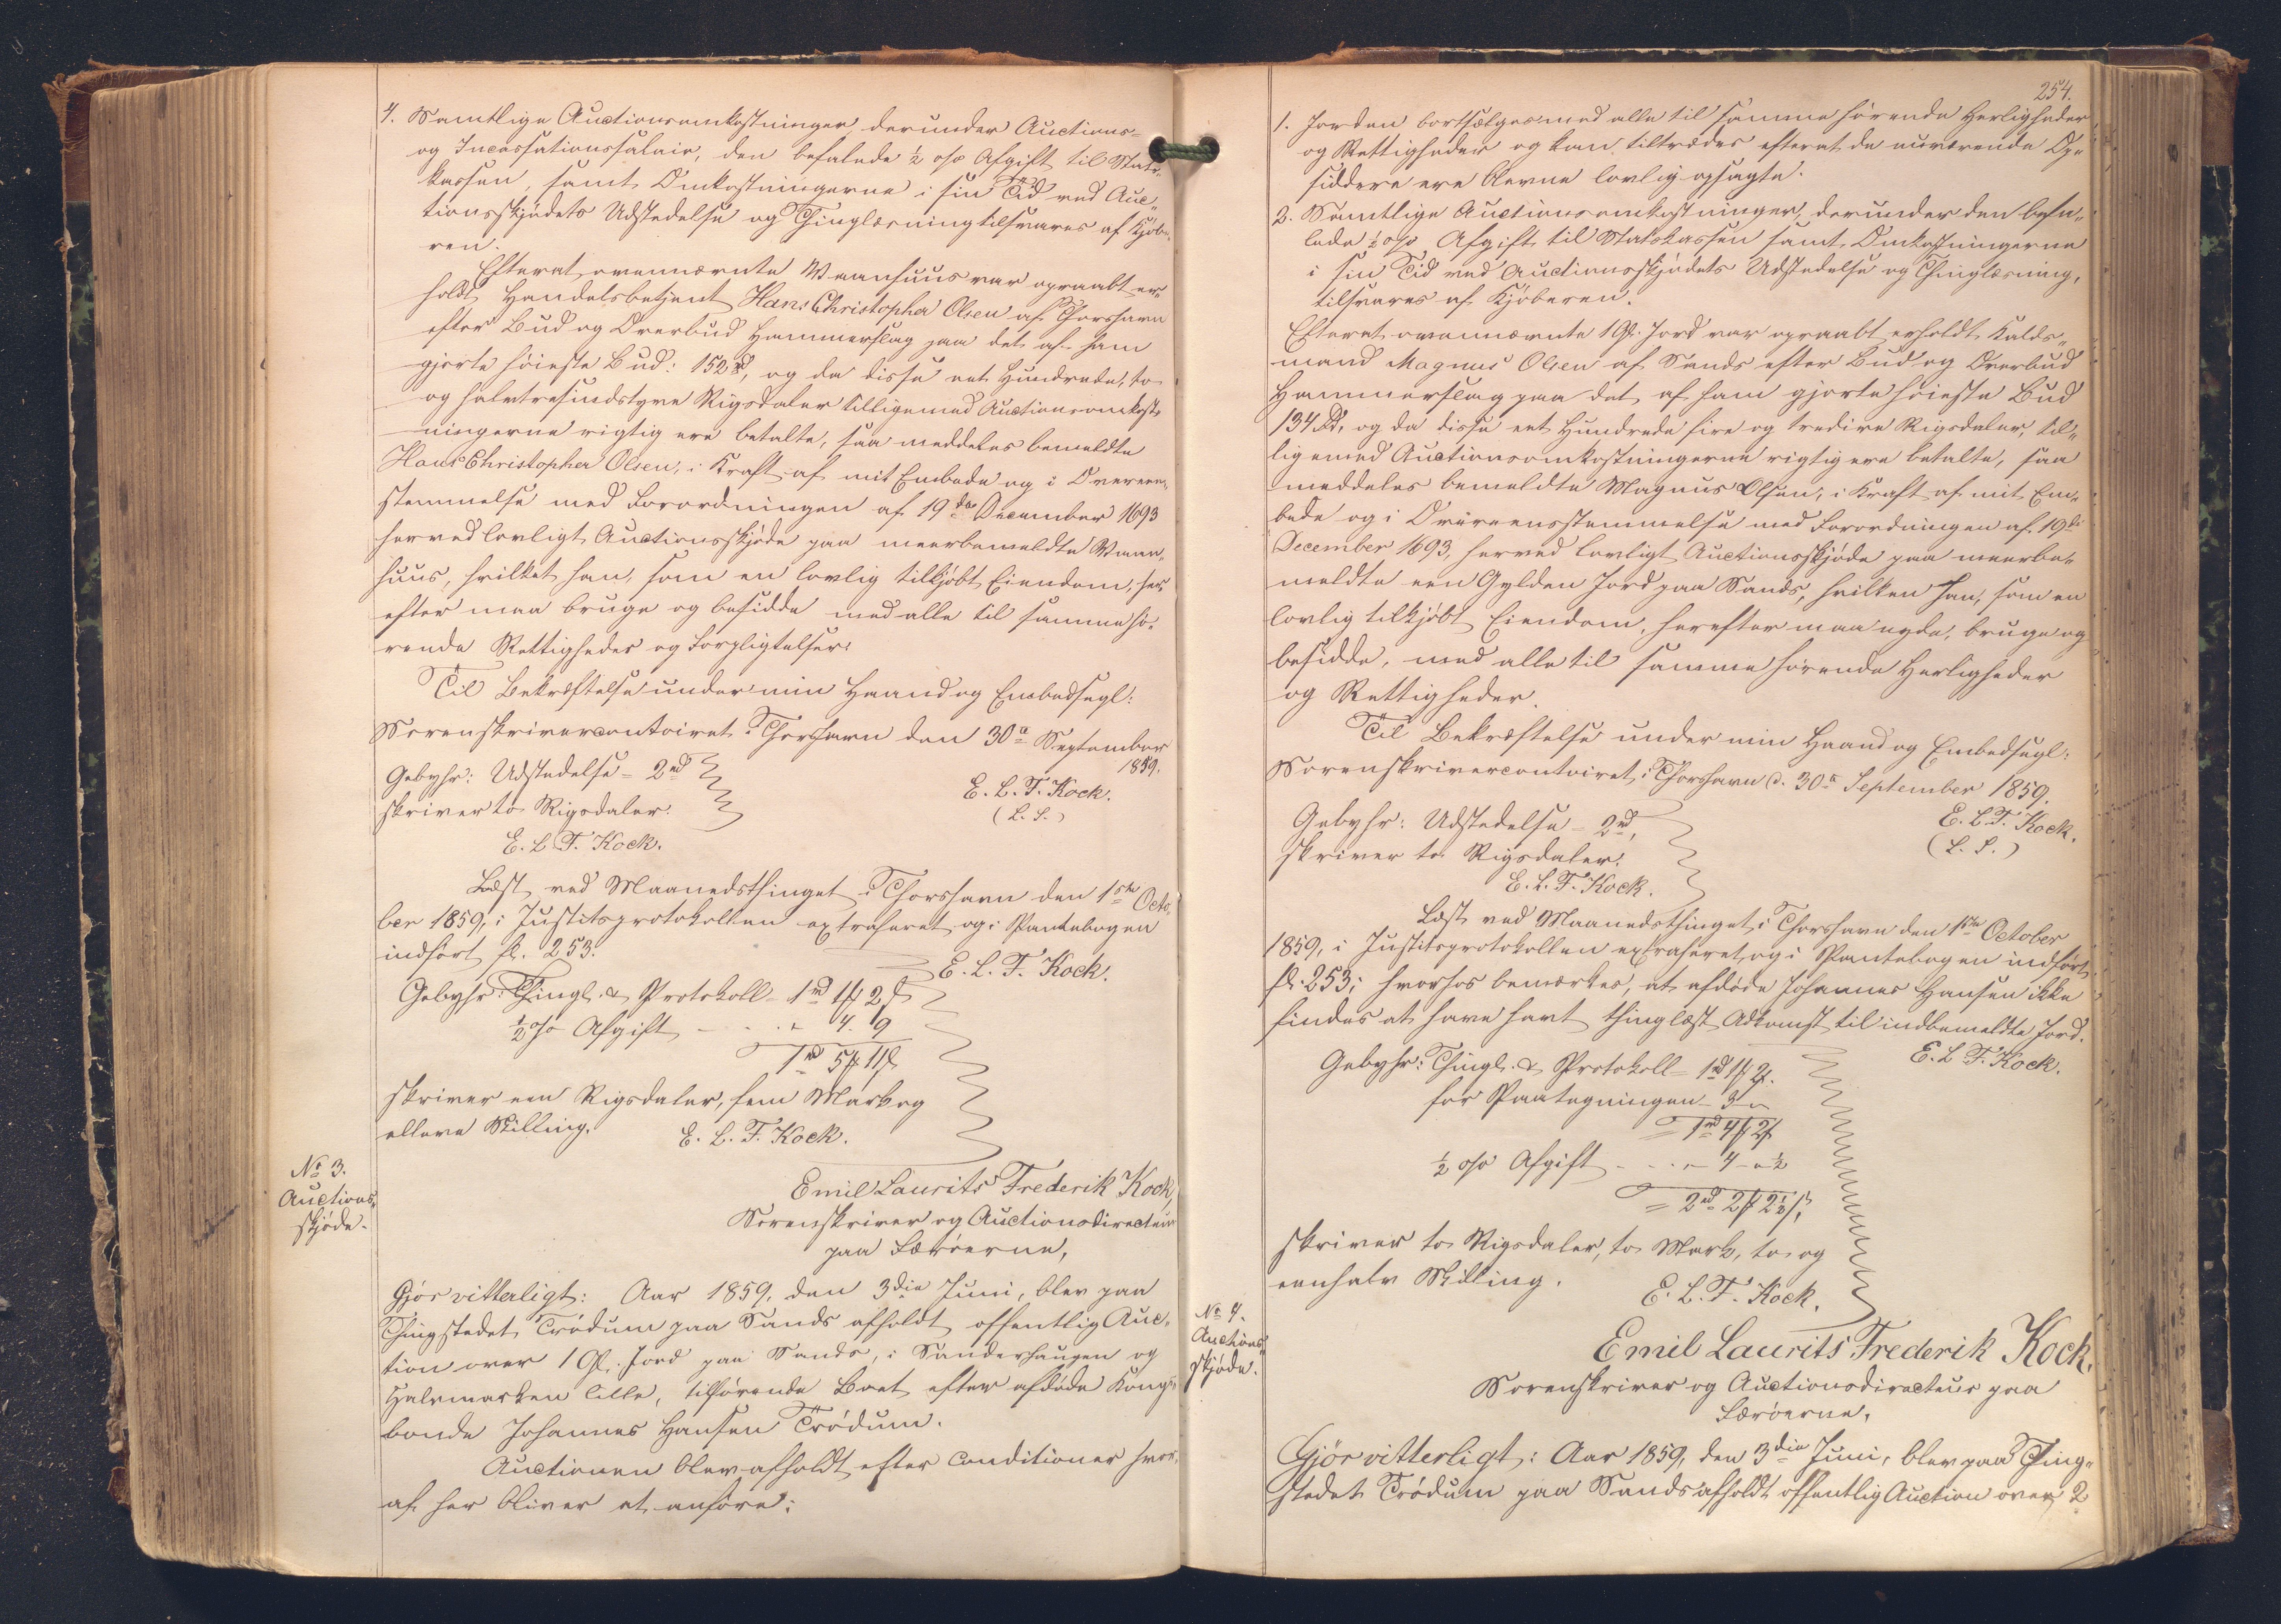 4. Samtlige Auctionsomkostninger, derunder Auctions-
og Incassationssalair, den befalede ½ o/o Afgift til Stats-
kassen, samt Omkostningerne i sin Tid ved Auc-
tionsskjødets Udstedelse og Thinglæsning tilsvares af Kjøbe-
ren.
Efterat ovennævnte Vaanhuus var opraabt er-
holdt Handelsbetjent Hans Christopher Olsen af Thorshavn
efter Bud og Overbud Hammerslag paa det af ham
gjorte høieste Bud: 152 Rd, og da disse eet Hundrede, to
og halvtresindstyve Rigsdaler tilligemed Auctionsomkost-
ningerne rigtig ere betalte, saa meddeles bemeldte
Hans Christopher Olsen, i Kraft af mit Embede og iOvereen-
stemmelse med Forordningen af 19de December 1693
herved lovligt Auctionsskjøde paa meerbemeldte Vaan-
huus, hvilket han, som en lovlig tilkjøbt Eiendom, her-
efter maa bruge og besidde med alle til samme hø-
rende Rettigheder og Forpligtelser.
Til Bekræftelse under min Haand og Embedsegl:
Sorenskrivercontoiret i Thorshavn den 30te September
1859.
Gebyhr: Udstedelse = 2rd
E. L. F. Kock.
skriver to Rigsdaler.
(L. S.)
E. L. F. Kock.
Læst ved Maanedsthinget i Thorshavn den 1ste Octo-
ber 1859, i Justitsprotokollen extraheret og i Pantebogen
indført fl. 253.
E. L. F. Kock.
Gebyhr: Thingl. & Protokoll = 1rd 1# 2s
½ o/o Afgift - . . " 4. 9
1rd 5# 11s
skriver een Rigsdaler, fem Mark og
elleve Skilling.
E. L. F. Kock.
No 3.
Auctions-
skjøde.
Emil Laurits Frederik Kock,
Sorenskriver og Auctionsdirecteur
paa Færøerne,
Gjør vitterligt: Aar 1859, den 3die Juni, blev paa
Thingstedet Trødum paa Sands afholdt offentlig Auc-
tion over 1 Gl. Jord paa Sands, i Sanderhaugen og
Halvmarken lille, tilhørende Boet efter afdøde Kongs-
bonde Johannes Hansen Trødum.
Auctionen blev afholdt efter Conditioner hvor-
af her bliver at anføre:
254.
1. Jorden bortsælges med alle til samme hørende Herligheder
og Rettigheder og kan tiltrædes efterat de nuværende Op-
siddere ere blevne lovlig opsagte.
2. Samtlige Auctionsomkostninger, derunder den befa-
lede ½ o/o Afgift til Statskassen samt Omkostningerne
i sin Tid ved Auctionsskjødets Udstedelse og Thinglæsning,
tilsvares af Kjøberen.
Efterat ovennævnte 1 Gl. Jord var opraabt erholdt Kalds-
mand Magnus Olsen af Sands efter Bud og Overbud
Hammerslag paa det af ham gjorte høieste Bud
134 Rd, og da disse eet Hundrede fire og tredive Rigsdaler, til-
ligemed Auctionsomkostningerne rigtig ere betalte, saa
meddeles bemeldte Magnus Olsen, i Kraft af mit Em-
bede og i Overeensstemmelse med Forordningen af 19de
December 1693, herved lovligt Auctionsskjøde paa meerbe-
meldte een Gylden Jord paa Sands, hvilken han, som en
lovlig tilkjøbt Eiendom, herefter maa nyde, bruge og
besidde, med alle til samme hørende Herligheder
og Rettigheder.
Til Bekræftelse under min Haand og Embedsegl:
Sorenskrivercontoiret i Thorshavn d. 30te September 1859.
E. L. F. Kock.
Gebyhr: Udstedelse = 2rd,
(L. S.)
skriver to Rigsdaler.
E. L. F. Kock.
Læst ved Maanedsthinget i Thorshavn den 1ste October
1859, i Justitsprotokollen extraheret, og i Pantebogen indført
fl. 253; hvorhos bemærkes, at afdøde Johannes Hansen ikke
findes at have havt thinglæst Adkomst til indbemeldte Jord.
E. L. F. Kock.
Gebyhr: Thingl. & Protokoll = 1rd 1# 2s.
for Paategningen - 3 "
= 1rd 4# 2s
½ o/o Afgift - . . " 4 - " ½
= 2rd 2# 2½s,
skriver to Rigsdaler, to Mark, to og
eenhalv Skilling.
E. L. F. Kock.
No 4.
Auctions-
skjøde.
Emil Laurits Frederik Kock,
Sorenskriver og Auctionsdirecteur paa
Færøerne,
Gjør vitterligt: Aar 1859, den 3die Juni, blev paa Thing-
stedet Trødum paa Sands afholdt offentlig Auction over 2